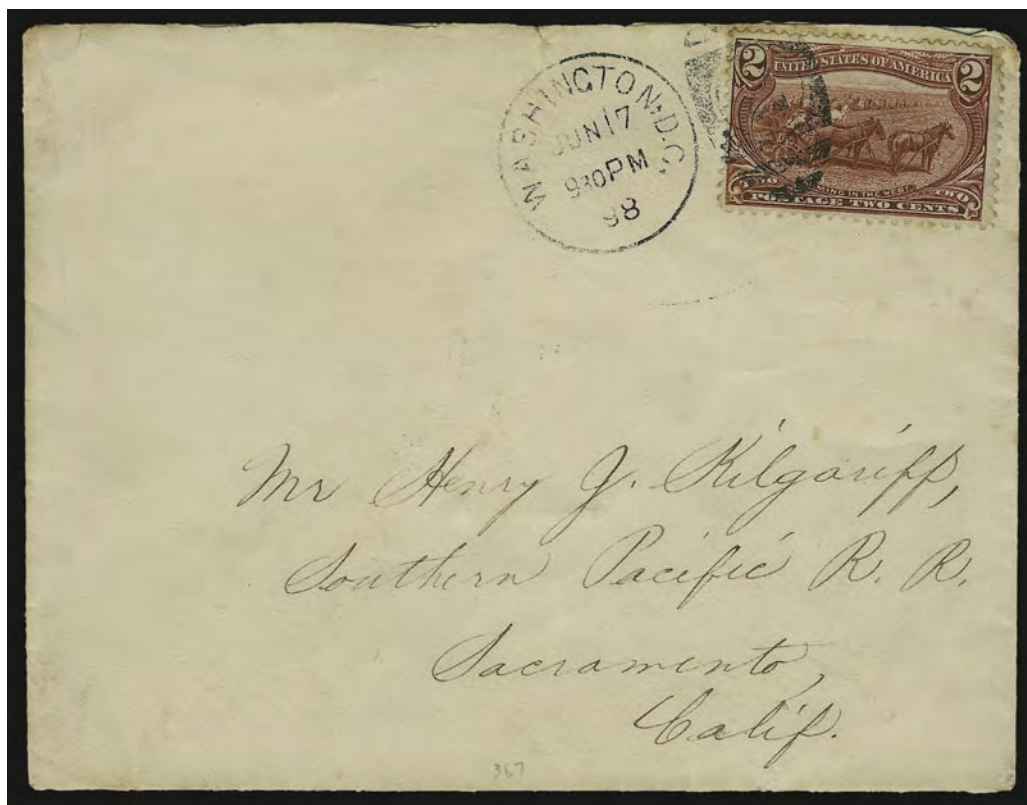 WASHINGTON, D.C.
JUN 17
930PM
98
2 UNITED STATES OF AMERICA 2
FARMING IN THE WEST
TWO TWO
POSTAGE TWO CENTS
Mr Henry J. Kilgariff,
Southern Pacific R. R.
Sacramento,
Calif.
367